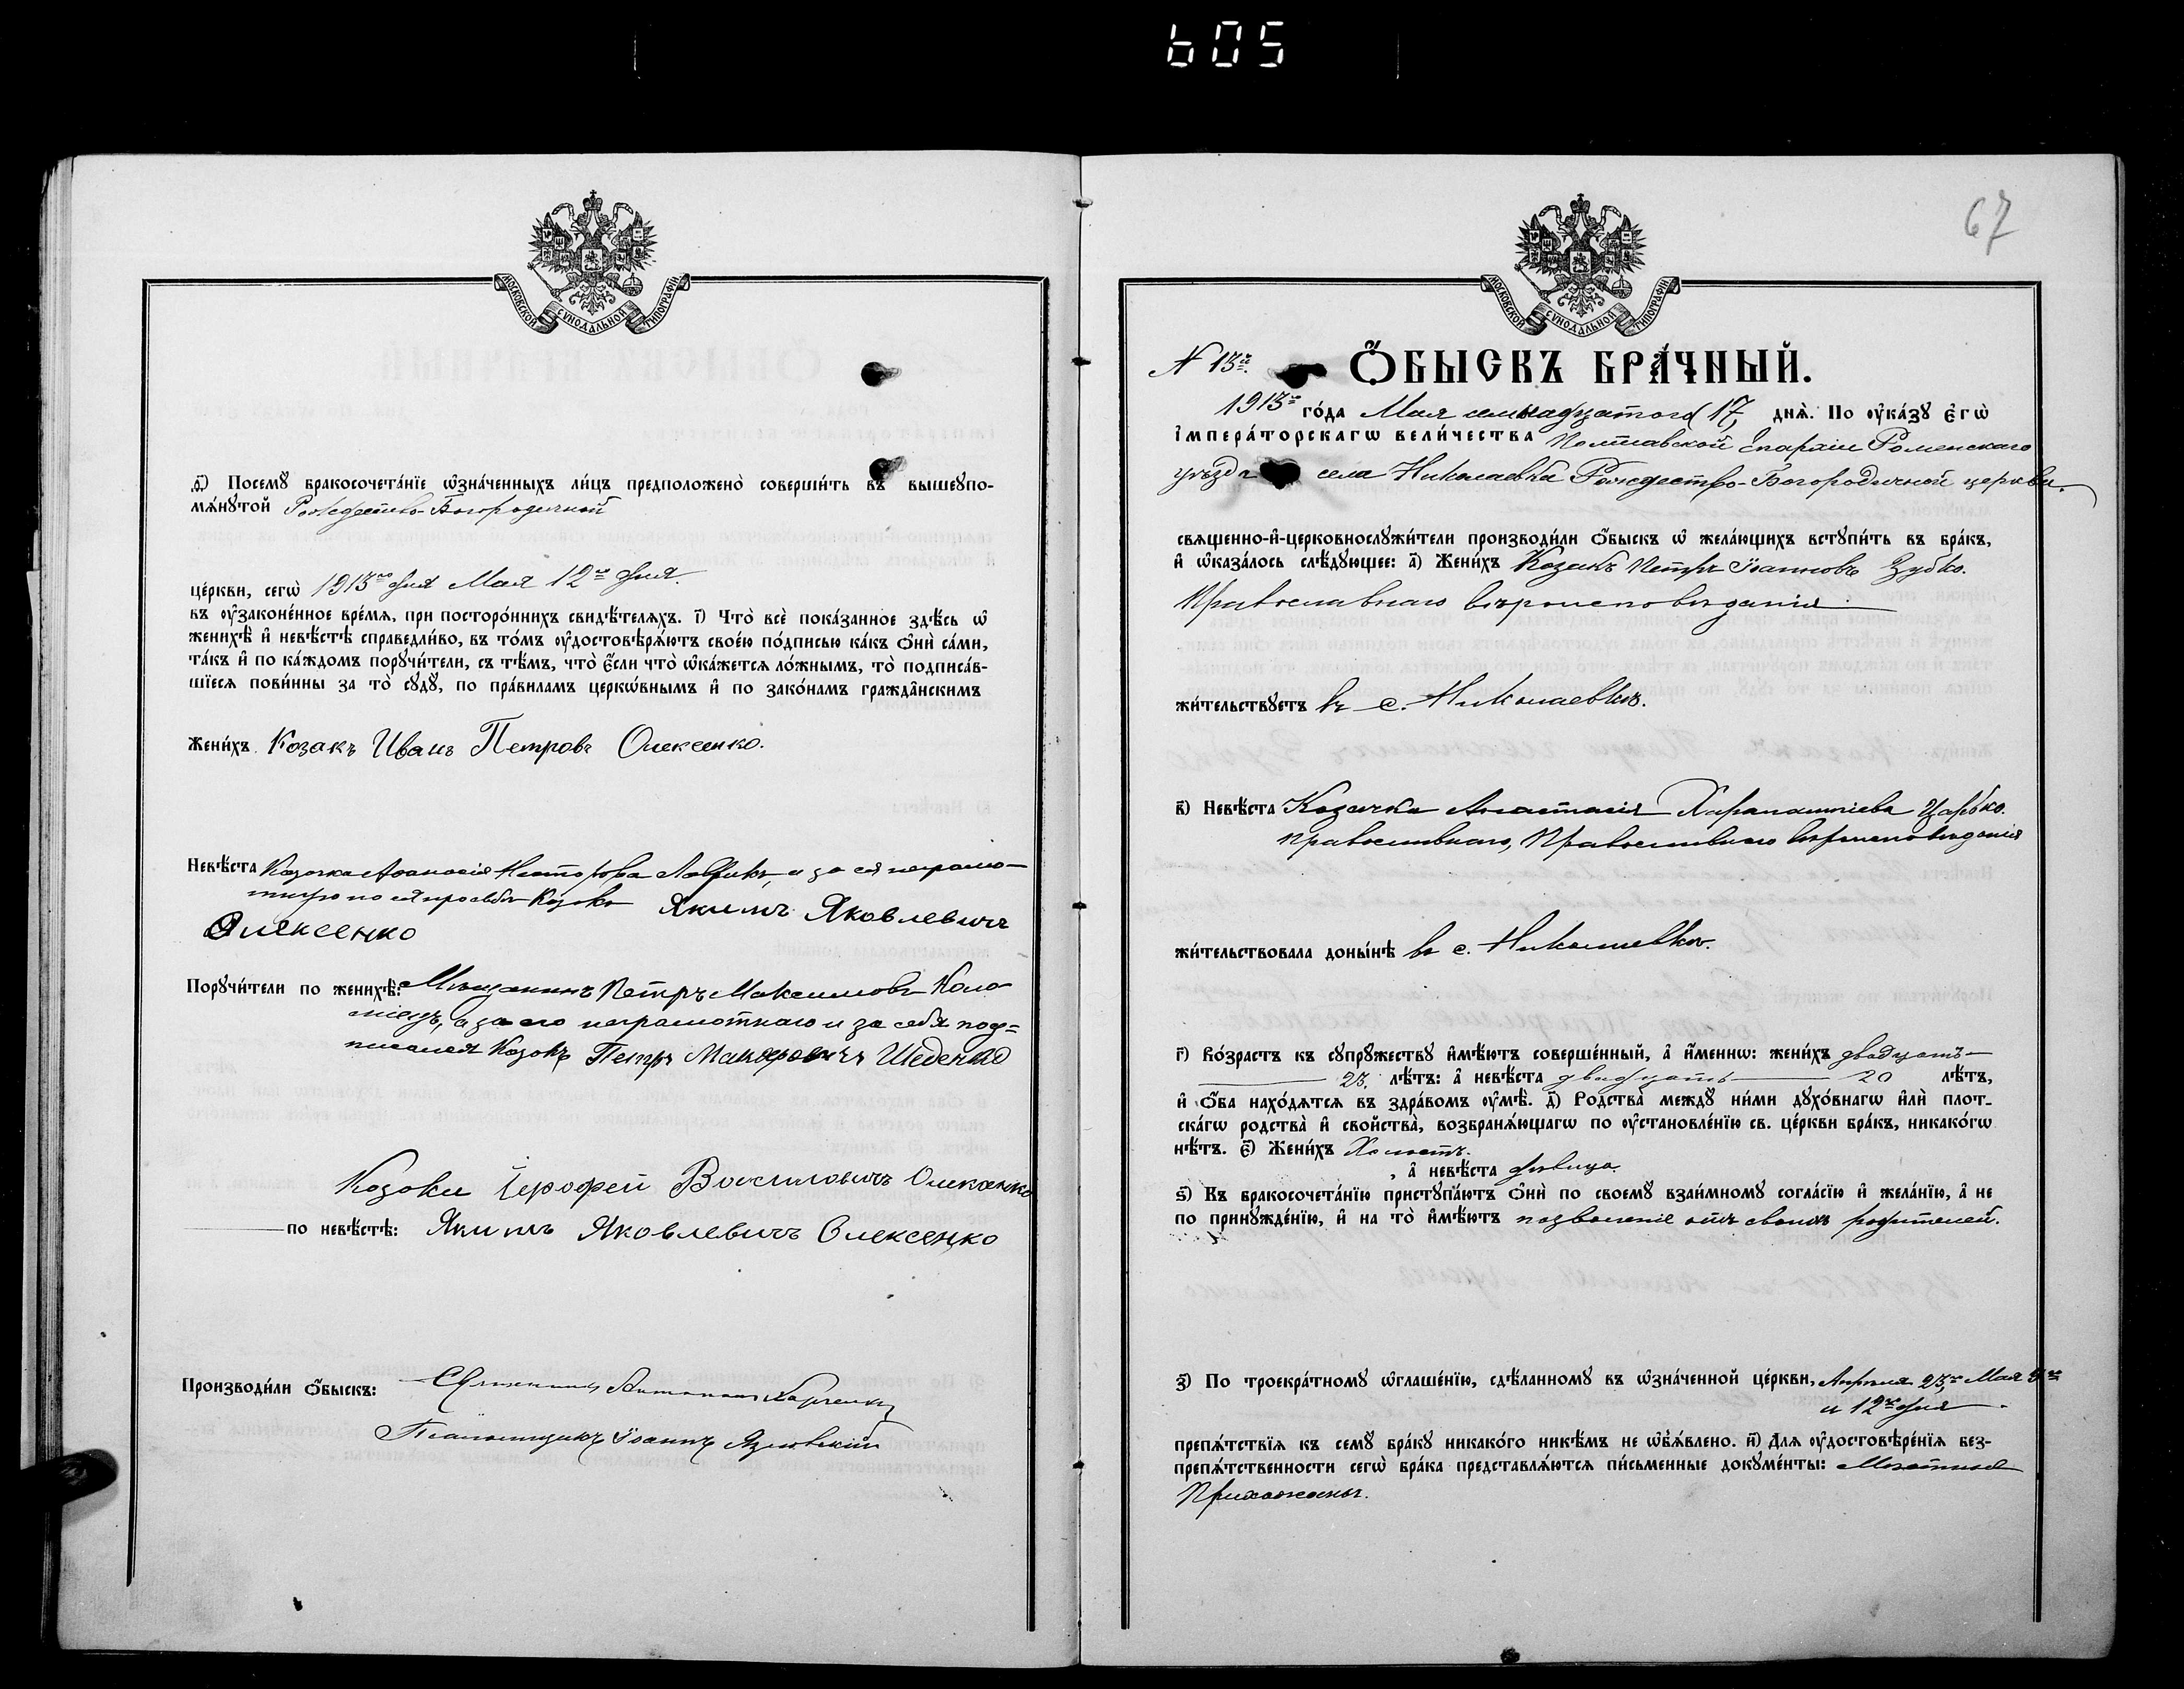 605
МОСКОВСКОЙ СѴНОДАЛЬНОЙ ТИПОГРАФІИ
ѳ҃) Посемꙋ̀ бракосочета́нїе ѡ҆зна́ченныхъ ли́цъ предположено̀ соверши́ть въ вышеꙋпо-
мѧ́нꙋтой Рождество-Богородичной
це́ркви, сегѡ̀ 1913го дня Мая 12го дня.
въ ᲂу҆зако́ненное вре́мѧ, при посторо́ннихъ свидѣ́телѧхъ. і҃) Что̀ всѐ пока́занное здѣ́сь ѡ҆
женихѣ̀ и҆ невѣ́стѣ справедли́во, въ то́мъ ᲂу҆достовѣрѧ́ютъ свое́ю по́дписью ка́къ ѻ҆нѝ са́ми,
та́къ и҆ по ка́ждомъ порꙋчи́тели, съ тѣ́мъ, что̀ є҆́сли что̀ ѡ҆ка́жетсѧ ло́жнымъ, то̀ подписа́в-
шїесѧ пови́нны за то̀ сꙋдꙋ̀, по пра́виламъ церкѡ́внымъ и҆ по зако́намъ гражда́нскимъ
Жени́хъ Козакъ Иванъ Петровъ Олексенко.
Невѣ́ста Козачка Афанасія Несторова а за ея неграмо-
тную по ея просьбѣ Козакъ Якимъ Яковлевичъ
Олексенко
Порꙋчи́тели по женихѣ̀: Мѣщанинъ Петръ Максимовъ Коло-
мiецъ, а за его неграмотнаго и за себя под=
писался Козакъ Петръ Макаровичъ Шеденко
Козаки Іерофей Василовичъ Олексенко
по невѣ́стѣ: Якимъ Яковлевичъ Олексенко
Производи́ли ѻ҆́быскъ: Священникъ Харченко
Псаломщикъ Іоаннъ
67
МОСКОВСКОЙ СѴНОДАЛЬНОЙ ТИПОГРАФІИ
N 13й. Ѻ҆́БЫСКЪ БРА́ЧНЫЙ.
1913го го́да Мая семнадцатого (17) днѧ̀. По ᲂу҆ка́зꙋ є҆гѡ̀
і҆мпера́торскагѡ вели́чества Полтавской Епархіи Роменскаго
уѣзда села Николаевка Рождество-Богородичной церкви.
свѧщенно-и҆-церковнослꙋжи́тели производи́ли ѻ҆́быскъ ѡ҆ жела́ющихъ встꙋпи́ть въ бра́къ,
и҆ ѡ҆каза́лось слѣ́дꙋющее: а҃) Жени́хъ Козакъ Петръ Іоанновъ Зубко.
Православнаго вѣроисповѣданія
жи́тельствꙋетъ въ с. Николаевкѣ.
в҃) Невѣ́ста Козачка Анастасія Харалампіева Царько.
православнаго, Православнаго вѣроисповѣданія
жи́тельствовала доны́нѣ въ с. Николаевкѣ.
г҃) Во́зрастъ къ сꙋпрꙋ́жествꙋ и҆мѣ́ютъ соверше́нный, а҆ и҆́меннѡ: жени́хъ двадцать
23. лѣ́тъ: а҆ невѣ́ста двадцать 20 лѣ́тъ,
и҆ ѻ҆́ба нахо́дѧтсѧ въ здра́вомъ ᲂу҆мѣ̀. д҃) Родства̀ междꙋ̀ ни́ми дꙋхо́внагѡ и҆лѝ плот-
ска́гѡ родства̀ и҆ сво́йства̀, возбранѧ́ющагѡ по ᲂу҆становле́нїю св. це́ркви бра́къ, никако́гѡ
нѣ́тъ. є҃) Жени́хъ Холостъ.
, а҆ невѣ́ста дѣвица.
ѕ҃) Къ бракосочета́нїю пристꙋпа́ютъ ѻ҆нѝ по своемꙋ̀ взаи́мномꙋ согла́сїю и҆ жела́нїю, а҆ не
по принꙋжде́нїю, и҆ на то̀ и҆мѣ́ютъ позволеніе отъ своихъ родителей.
з҃) По троекра́тномꙋ ѡ҆глаше́нїю, сдѣ́ланномꙋ въ ѡ҆зна́ченной це́ркви, Апрѣля 23, Мая
и 12го дня
препѧ́тствїѧ къ семꙋ̀ бра́кꙋ никако́гѡ никѣ́мъ не ѡ҆б̾ѧ́влено. и҃) Длѧ ᲂу҆достовѣре́нїѧ без-
препѧ́тственности сегѡ̀ бра́ка представлѧ́ютсѧ пи́сьменные докꙋме́нты: Мѣстныя
Прихожаны.